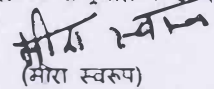 मीरा स्वरूप
(मीरा स्वरूप)